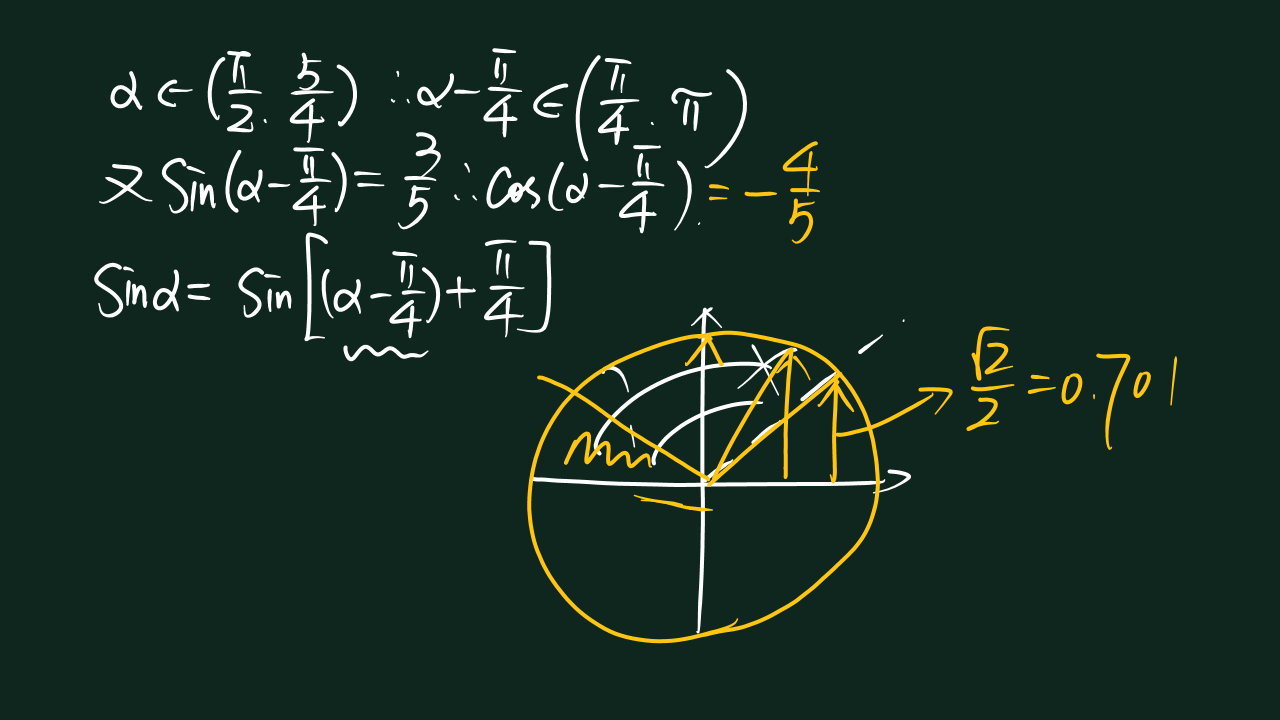 α∈(π/2. 5/4) ∴α-π/4∈(π/4. π)
又 Sin(α-π/4)=3/5 ∴cos(α-π/4)=-4/5
Sinα= Sin[(α-π/4)+π/4]
√2/2=0.701